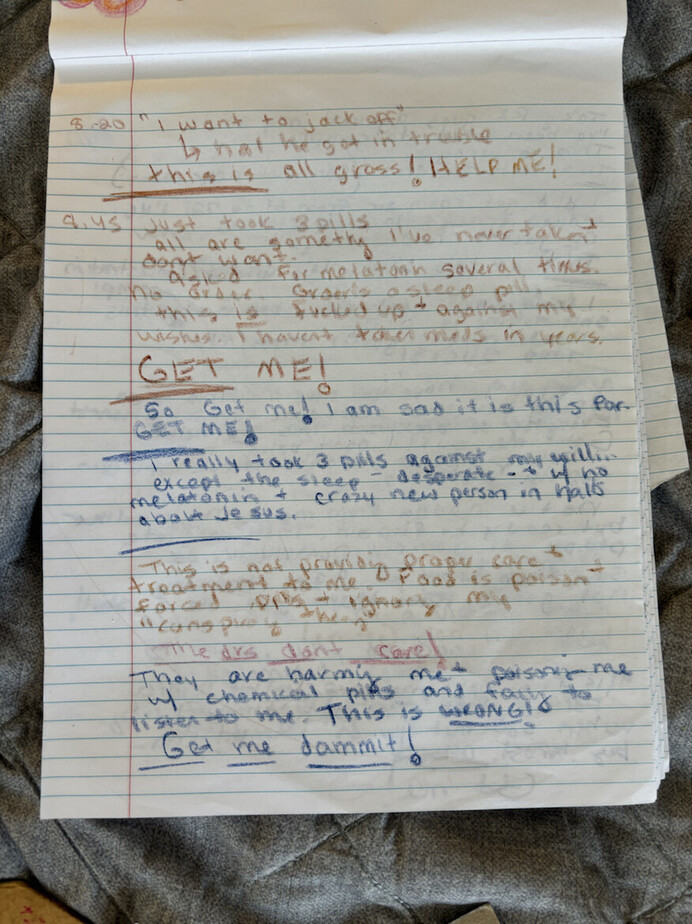 8:20 "I want to jack off"
↳ ha! he got in trouble
this is all gross! HELP ME!
9:45 Just took 3 pills
all are somethg I've never taken +
dont want.
asked for melatonin several times.
no order a sleep pill.
this is fucked up + against my
wishes. I havent taken meds in years.
GET ME!
So Get me! I am sad it is this far.
GET ME!
I really took 3 pills against my will...
except the sleep - desperate - + w/ no
melatonin + crazy new person in halls
about Jesus.
This is not providig proper care +
treatment to me. Food is poison +
forced pills + ignorig my
"conspiracy
The drs dont care!
They are harmig me + poisonig me
w/ chemical pills and failg to
listen to me. This is WRONG!
Get me dammit!